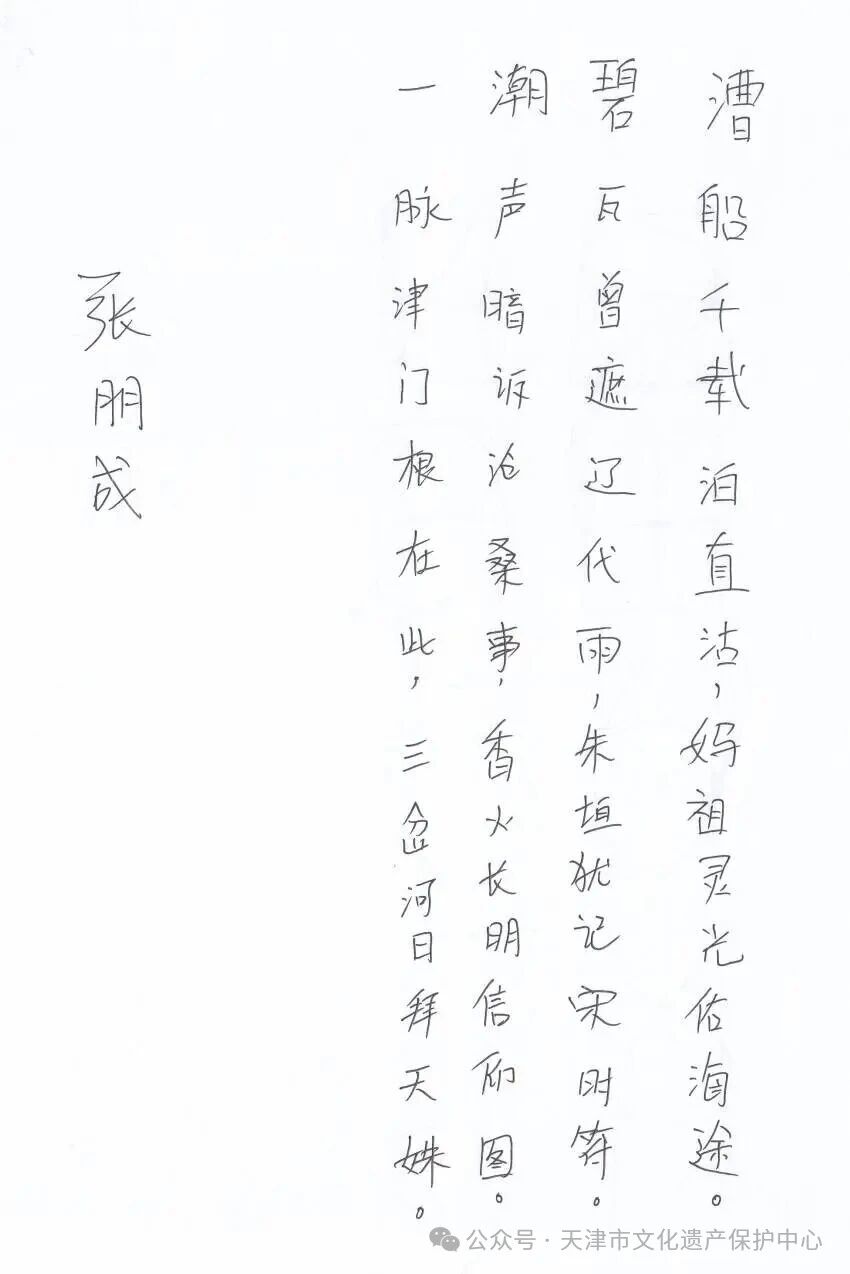 漕船千载泊直沽，妈祖灵光佑海途。
碧瓦曾遮辽代雨，朱垣犹记宋时符。
潮声暗诉沧桑事，香火长明信仰图。
一脉津门根在此，三岔河日拜天姝。
张朋成
公众号·天津市文化遗产保护中心